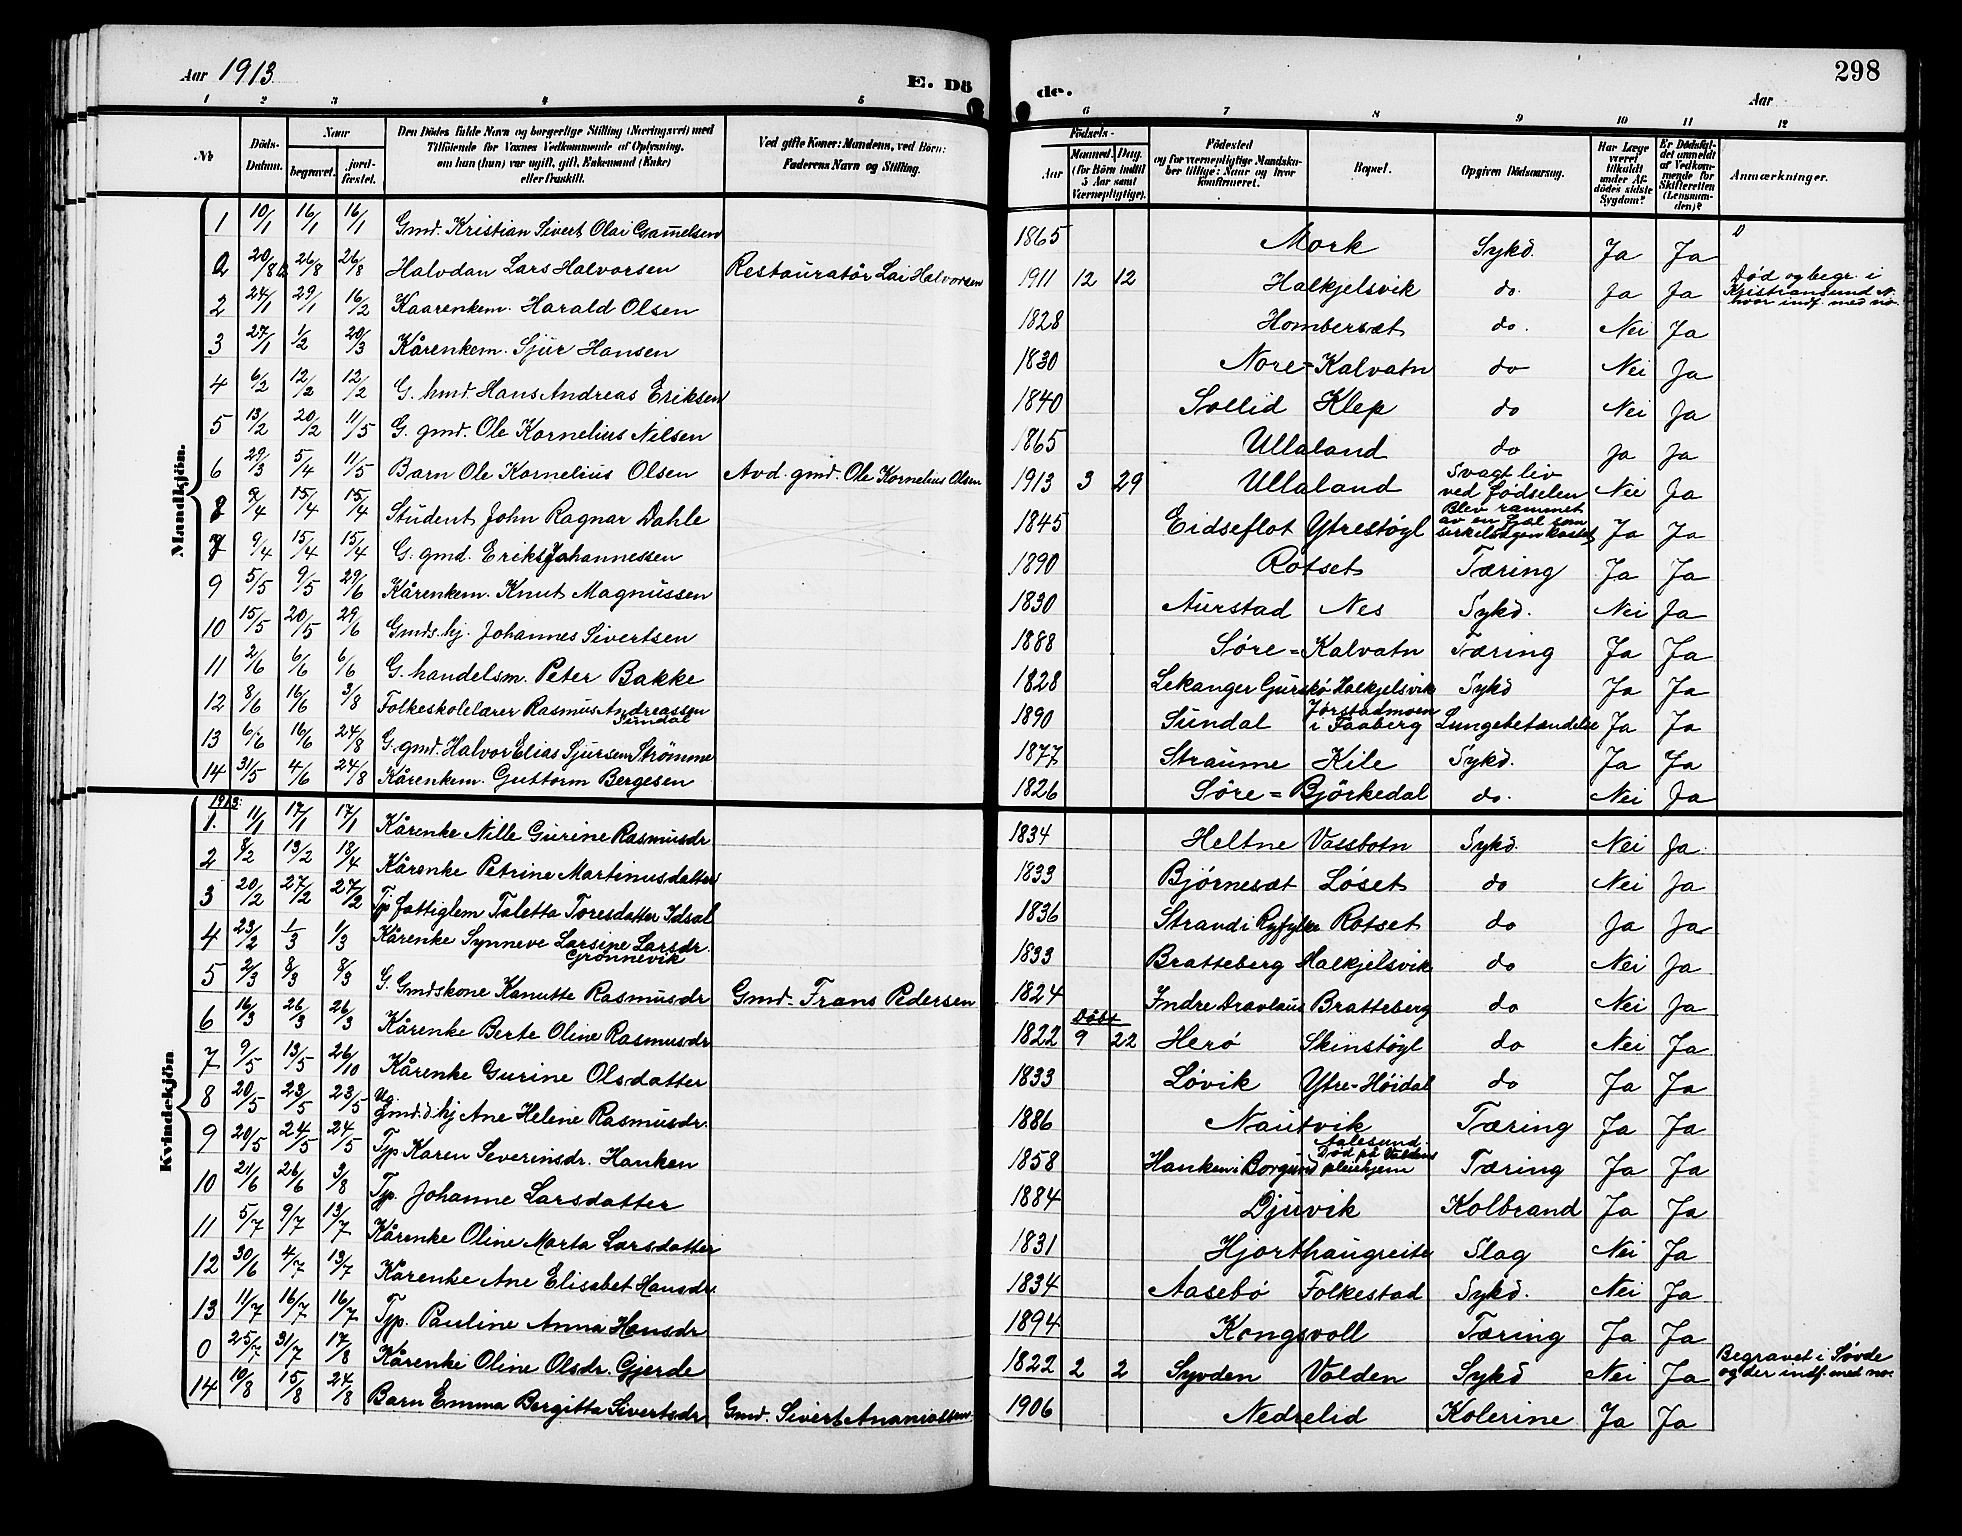 Aar 1913
E. Dö
de.
298
Aar
1 2 3 4 5 6 7 8 9 10 11 12
No Döds-Datum. Naar begravet. jord-fæstet. Den Dödes fulde Navn og borgerlige Stilling (Næringsvei) med Tilföiende for Voxnes Vedkommende af Oplysning, om han (hun) var ugift, gift, Enkemand (Enke) eller fraskilt. Ved gifte Koner: Mandens, ved Börn: Faderens Navn og Stilling. Födsels- Aar Maaned. Dag. (for Börn indtil 5 Aar samt Værnepligtige). Födested og for værnepligtige Mandska-ber tillige: Naar og hvor konfirmeret. Bopæl. Opgiven Dödsaarsag. Har Læge været tilkaldt under Af-dödes sidste Sygdom? Er Dödsfal-det anmeldt af Vedkom-mende for Skifteretten (Lensman-den)? Anmærkninger.
Mandkjön.
1 10/1 16/1 16/1 Gmd. Kristian Sivert Olai Gamelsen 1865 Mork Sykd. Ja Ja
0 20/8 26/8 26/8 Halvdan Lars Halvorsen Restauratör Lai Halvorsen 1911 12 12 Halkjelsvik do. Ja Ja Död og begr. i Kristiansund N. hvor indf. med no.
2 24/1 29/1 16/2 Kaarenkem. Harald Olsen 1828 Hombersæt do. Nei Ja
3 27/1 1/2 20/3 Kårenkem. Sjur Hansen 1830 Nore-Kalvatn do Nei Ja
4 6/2 12/2 12/2 G. hmd. Hans Andreas Eriksen 1840 Sollid Klep do Nei Ja
5 13/2 20/2 11/5 G. gmd. Ole Kornelius Nilsen 1865 Ullaland do Ja Ja
6 29/3 5/4 11/5 Barn Ole Kornelius Olsen Avd. gmd. Ole Kornelius Olsen 1913 3 29 Ullaland Svagt liv ved fødselen Nei Ja
8 9/4 15/4 15/4 Student John Ragnar Dahle 1845 Eidseflot Ytrestøyl Blev rammet av en fjæl som sirkelsagen kastet Ja Ja
7 9/4 15/4 15/4 G. gmd. Erik Johannessen 1890 Rotset Tæring Ja Ja
9 5/5 9/5 29/6 Kårenkem. Knut Magnussen 1830 Aurstad Nes Sykd. Nei Ja
10 15/5 20/5 29/6 Gmds. hj. Johannes Sivertsen 1888 Søre=Kalvatn Tæring Ja Ja
11 2/6 6/6 6/6 G. handelsm. Peter Bakke 1828 Lekanger Gurskö Halkjelsvik Sykd Ja Ja
12 8/6 16/6 3/8 Folkeskolelærer Rasmus Andreassen Sundal 1890 Sundal Jørstadmoen i Faaberg Lungebetændelse Ja Ja
13 6/6 16/6 24/8 G. gmd. Halvor Elias Sjursen Strömme 1877 Straume Kile Sykd. Ja Ja
14 31/5 4/6 24/8 Kårenkem. Guttorm Bergesen 1826 Søre=Björkedal do. Nei Ja
Kvindekjön
1913:
1. 11/1 17/1 17/1 Kårenke Nille Gurine Rasmusdr 1834 Heltne Vassbotn Sykd. Nei Ja
2 8/2 13/2 18/4 Kårenke Petrine Martinusdatter 1833 Bjørnesæt Løset do Nei Ja
3 20/2 27/2 27/2 Tp fattiglem Taletta Toresdatter Idsal 1836 Strand i Ryfylke Rotset do Ja Ja
4 23/2 1/3 1/3 Kårenke Synneve Larsine Larsdr. Grönnevik 1833 Bratteberg Halkjelsvik do Nei Ja
5 2/3 8/3 8/3 G. Gmdskone Kanutte Rasmusdr Gmd. Frans Pedersen 1824 Indre Dravlaus Bratteberg do Nei Ja
6 16/3 26/3 26/3 Kårenke Berte Oline Rasmusdr 1822 Döbt 9 22 Herö Skinstøyl do Nei Ja
7 9/5 13/5 26/10 Kårenke Gurine Olsdatter 1833 Løvik Ytre-Höidal do Ja Ja
8 20/5 23/5 23/5 Ug. gmd.d. hj Ane Helene Rasmusdr. 1886 Nautvik Tæring Ja Ja
9 20/5 24/5 24/5 Typ Karen Severinsdr. Hanken 1858 Hanken i Borgund Aalesund. Død på Voldens pleiehjem Tæring Ja Ja
10 21/6 26/6 3/8 Typ. Johanne Larsdatter 1884 Djuvik Kolbrand Ja Ja
11 5/7 9/7 13/7 Kårenke Oline Marta Larsdatter 1831 Hjorthaugreite Slag Nei Ja
12 30/6 4/7 13/7 Kårenke Ane Elisabet Hansdr. 1834 Aasebö Folkestad Sykd. Nei Ja
13 11/7 16/7 16/7 Typ. Pauline Anna Hansdr 1894 Kongsvoll Tæring Ja Ja
0 25/7 31/7 17/8 Kårenke Oline Olsdr. Gjerde 1822 2 2 Syvden Volden Sykd Nei Ja Begravet i Søvde og der indf. med no.
14 19/8 15/8 24/8 Barn Emma Bergitta Sivertsdr Gmd. Sivert Ananiassen 1906 Nedrelid Kolerine Ja Ja